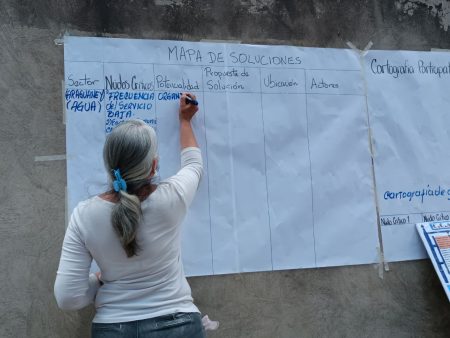 MAPA DE SOLUCIONES
Sector
Nudo Crítico
Potencialidad
Propuesta de
Solución
Ubicación
Actores
ARAGUANEY
(AGUA)
FREQUENCIA
de SERVICIO
BAJA
ORGANI
Cartografía Participat
Cartografía de g
Nudo Crítico 1
Nudo Crítico